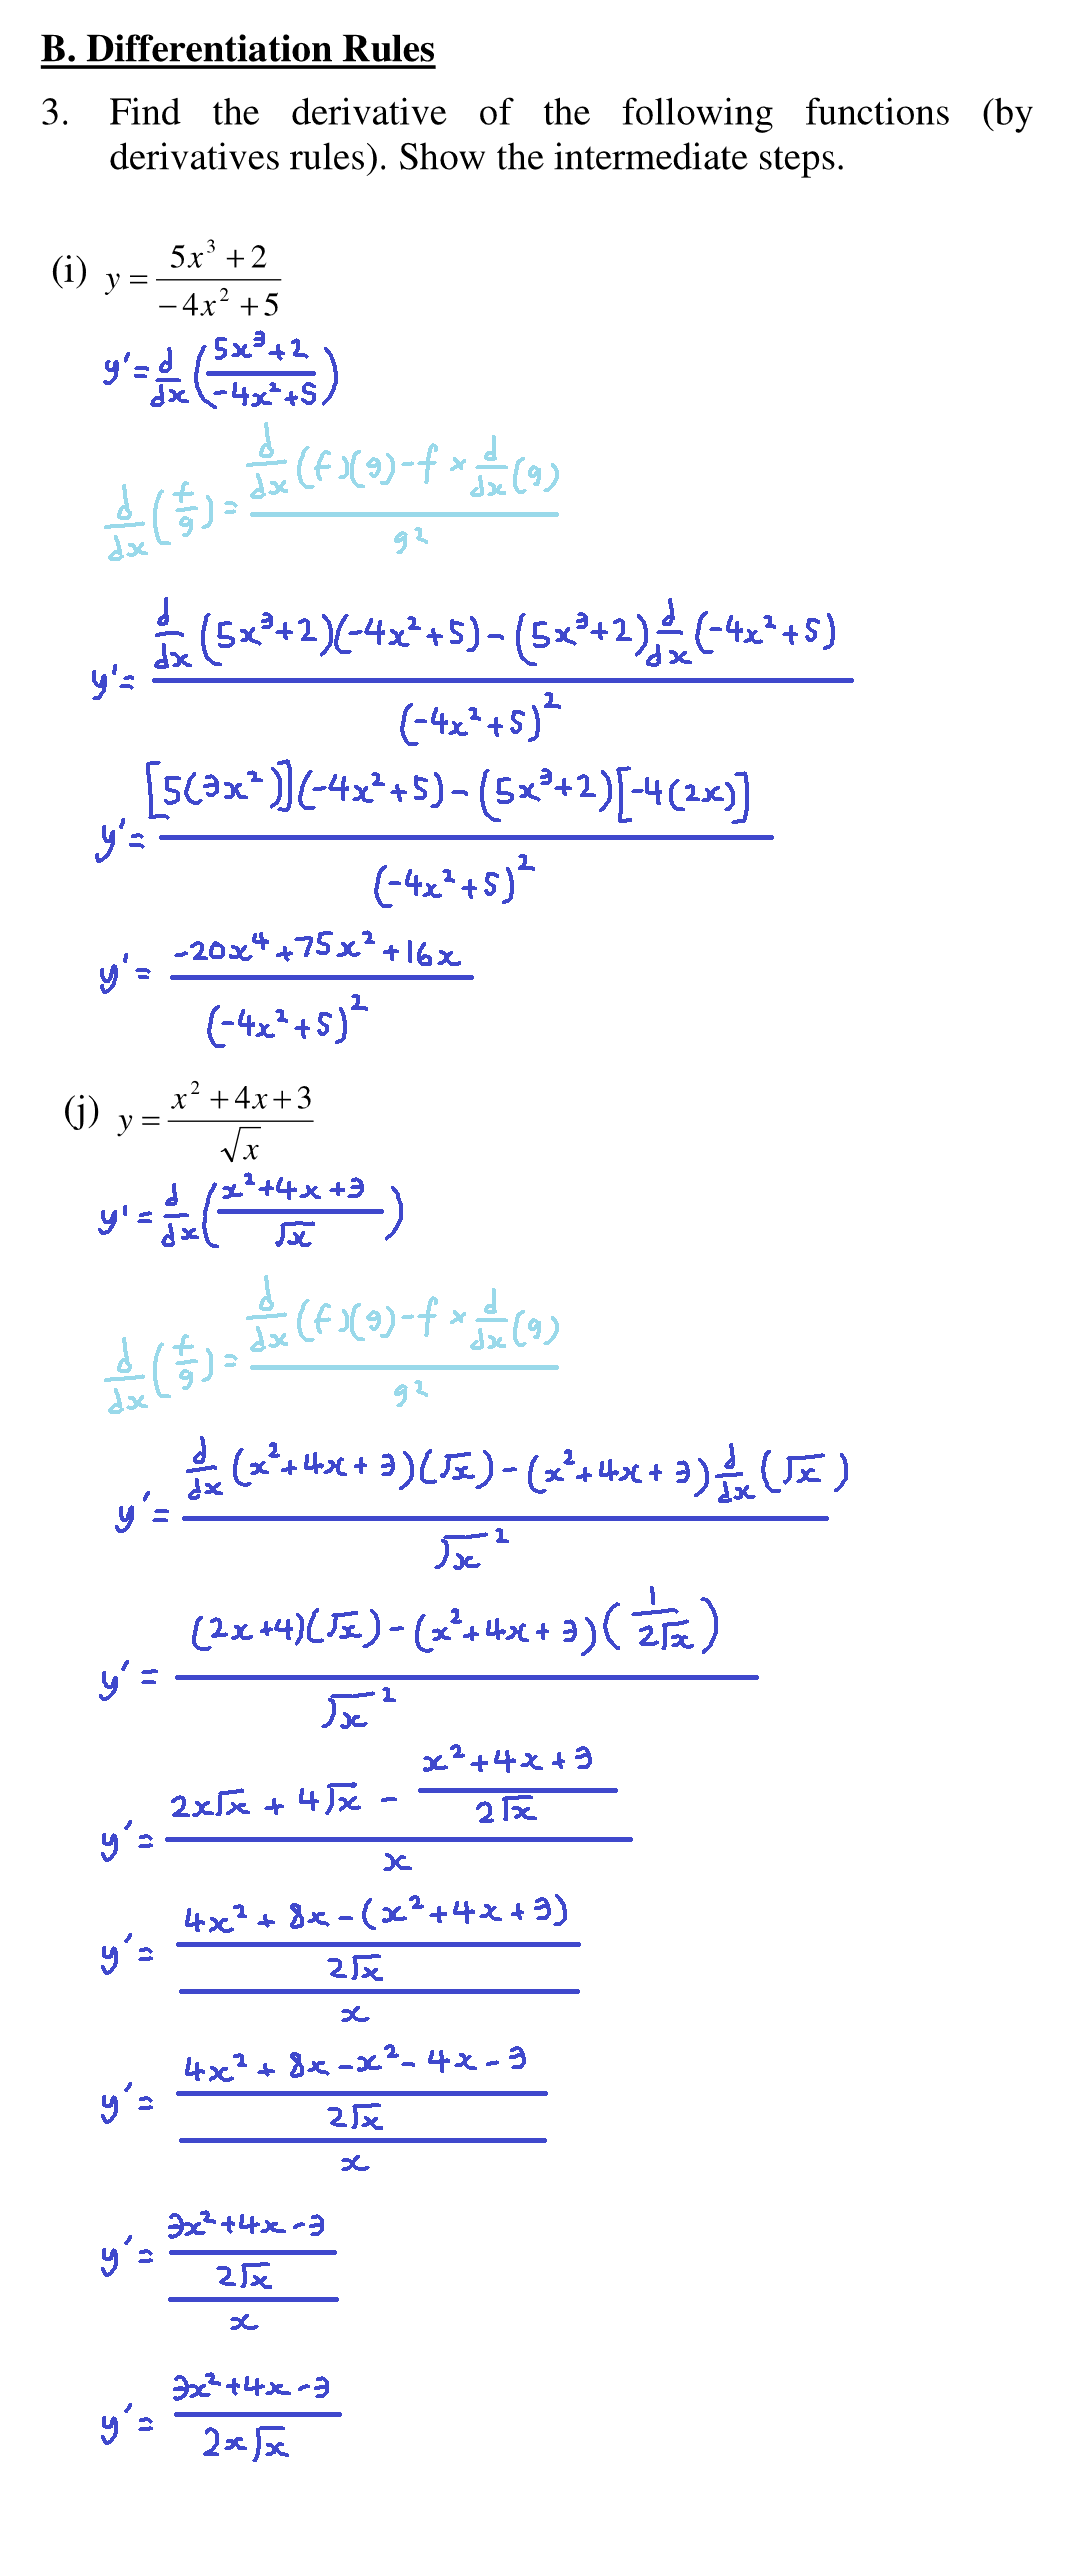 B. Differentiation Rules
3. Find the derivative of the following functions (by
derivatives rules). Show the intermediate steps.
(i) y = (5x³ + 2)/(−4x² + 5)
y' = d/dx ((5x³+2)/(-4x²+5))
d/dx (f/g) = (d/dx (f)(g) - f × d/dx (g))/g²
y' = (d/dx (5x³+2)(-4x²+5) - (5x³+2) d/dx (-4x²+5))/(-4x²+5)²
y' = ([5(3x²)](-4x²+5) - (5x³+2)[-4(2x)])/(-4x²+5)²
y' = (-20x⁴+75x²+16x)/(-4x²+5)²
(j) y = (x² + 4x + 3)/√x
y' = d/dx ((x²+4x+3)/√x)
d/dx (f/g) = (d/dx (f)(g) - f × d/dx (g))/g²
y' = (d/dx (x²+4x+3)(√x) - (x²+4x+3) d/dx (√x))/√x²
y' = ((2x+4)(√x) - (x²+4x+3)(1/(2√x)))/√x²
y' = (2x√x + 4√x - (x²+4x+3)/(2√x))/x
y' = ((4x² + 8x - (x²+4x+3))/(2√x))/x
y' = ((4x² + 8x - x² - 4x - 3)/(2√x))/x
y' = ((3x²+4x-3)/(2√x))/x
y' = (3x²+4x-3)/(2x√x)